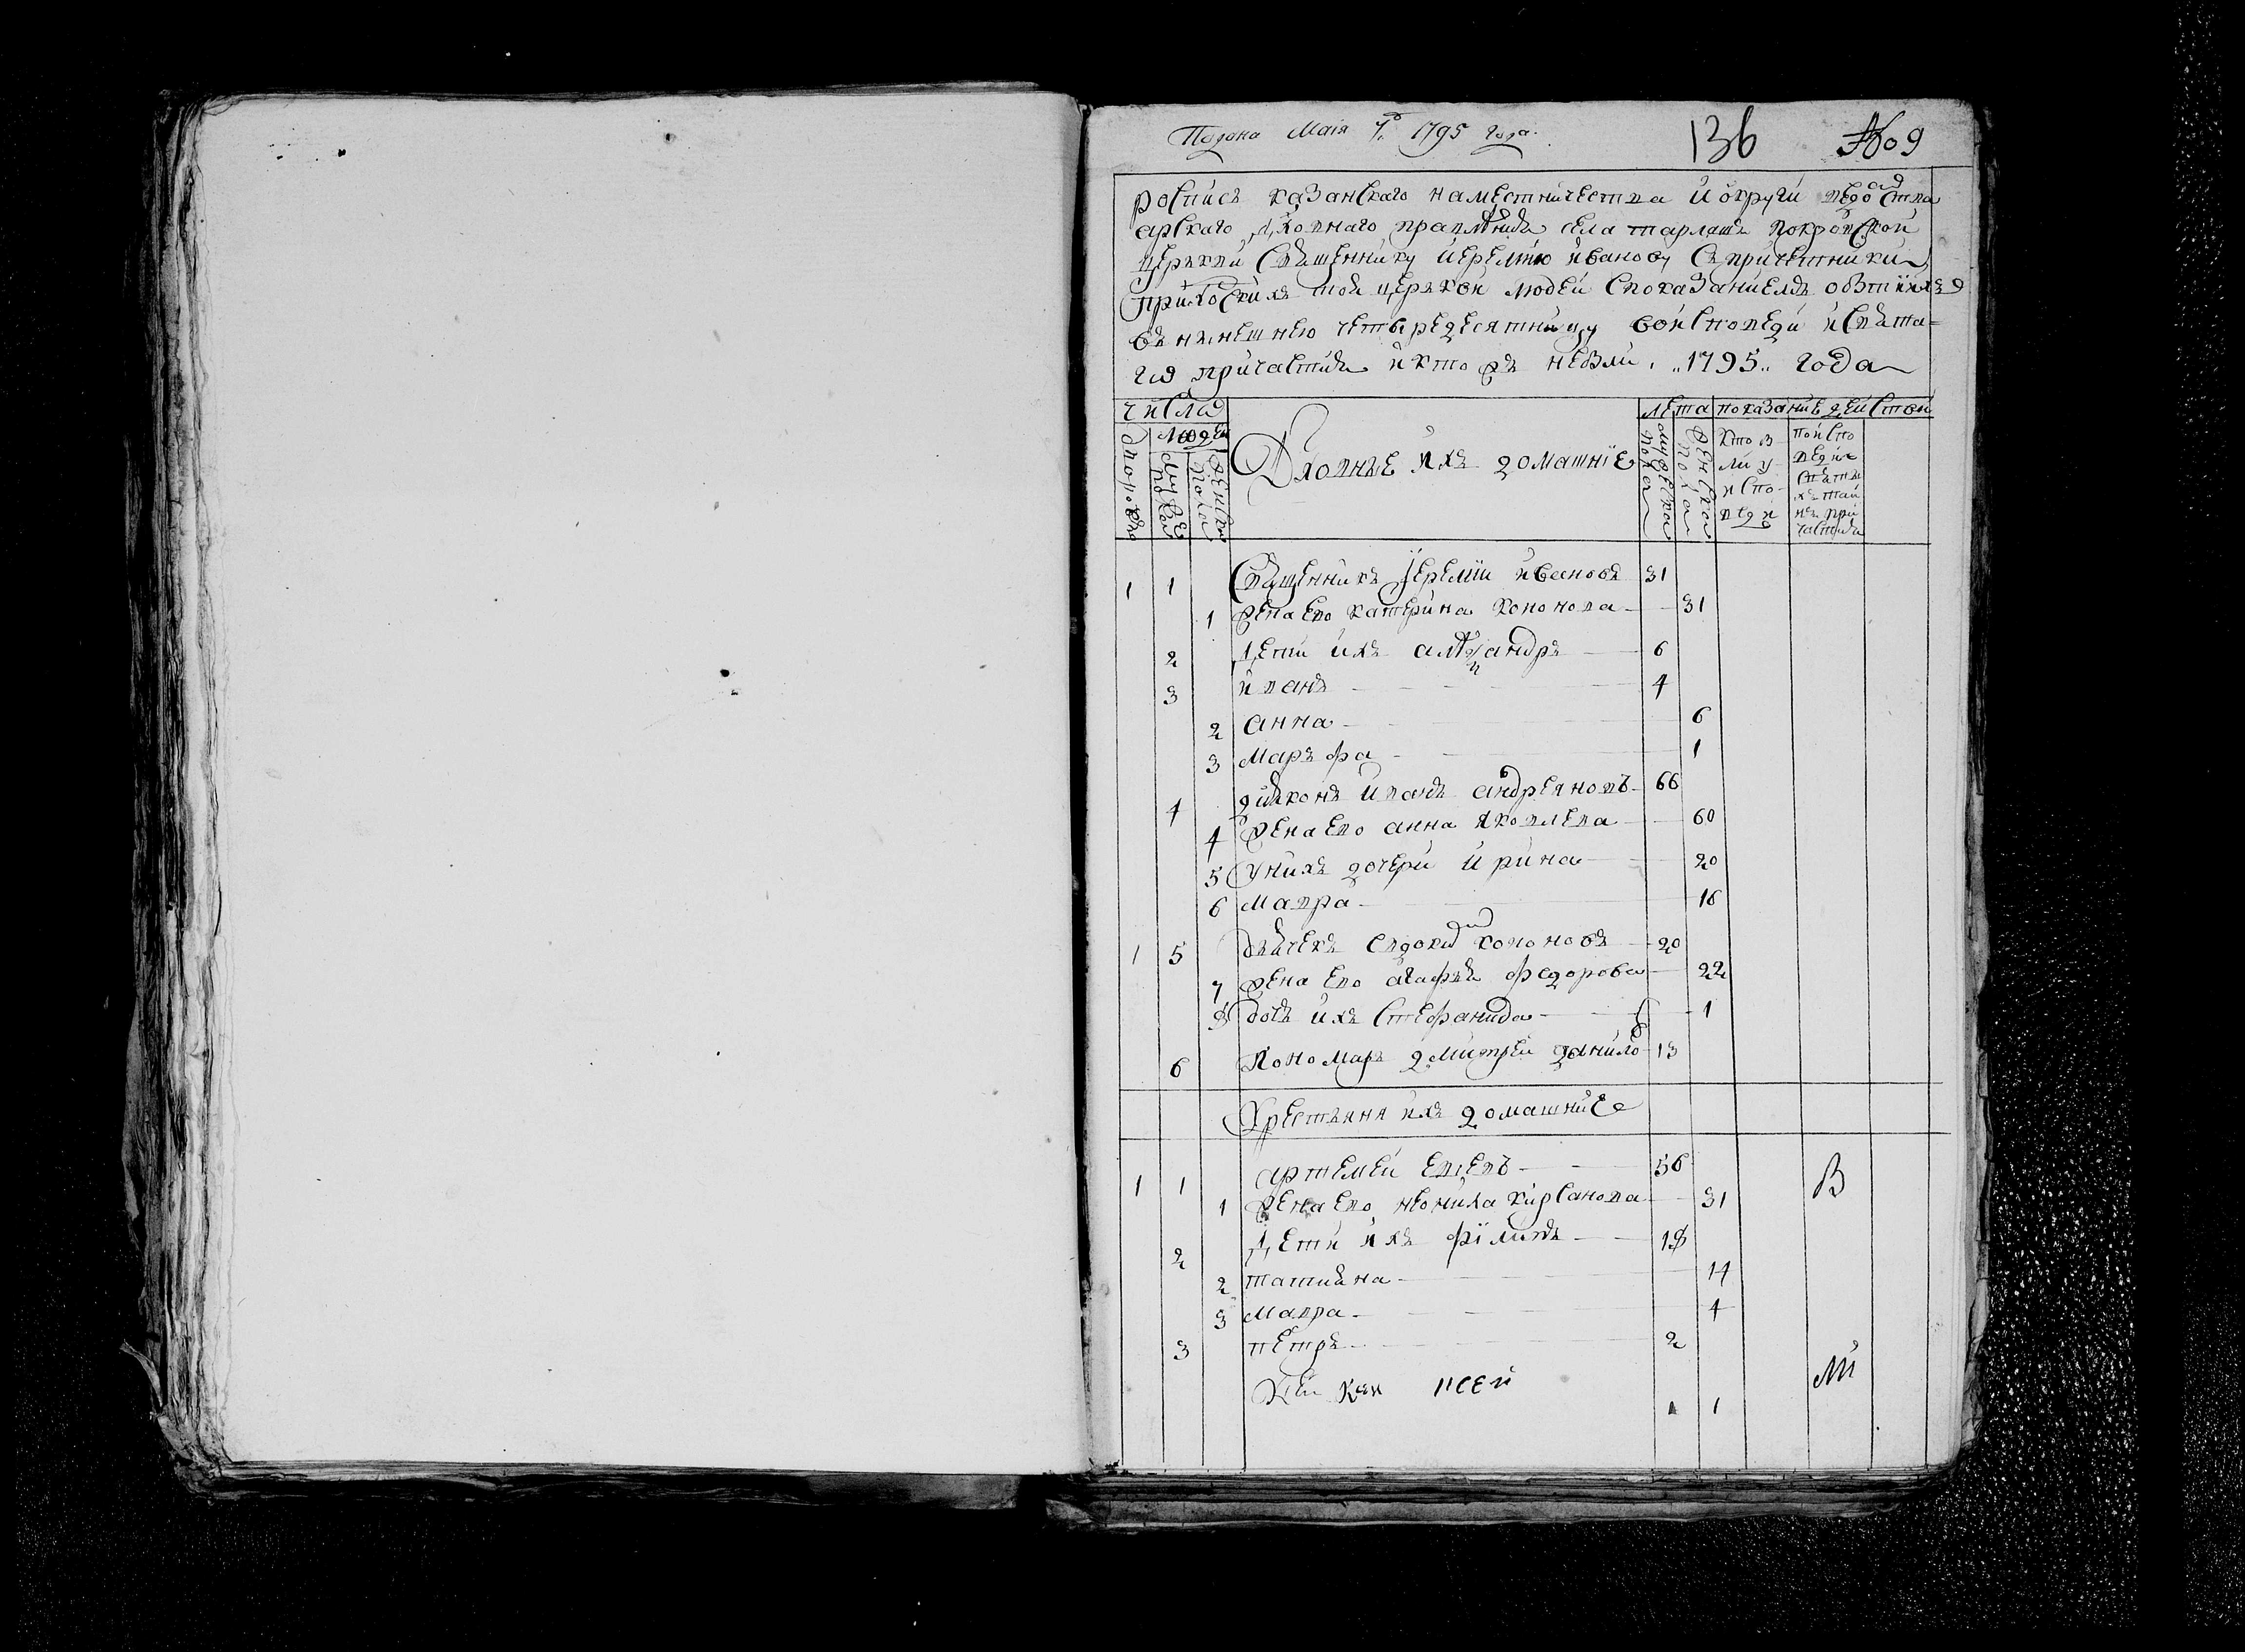 Подана Маія 7го 1795 года.
136
№ 9
роспись казанскаго наместничества и округи ведомства
арскаго духовнаго правлѣния села тарлаш покровской
церькви священнику иеремию иванову спричетники
приходскихъ той церькви людей споказаниемъ
внынешнею четыредесятницу воисповеди исвята=
го причастия икто жъ небыли. „1795„ года
числа
людей
лета
показание действи
дворовъ
мужеска пола
женска пола
Духовные ихъ домашніе
мужеска пола
женска пола
кто б
ли у
испо
веди
поиспо
веди
святы
хъ тай
нъ при
частия
1 1 Священникъ Иеремии ивановъ 31
1 жена ево катерина кононова 31
2 дети ихъ александръ 6
3 иванъ 4
2 анна 6
3 Маръфа 1
4 диаконъ иванъ андреяновъ 66
4 жена ево анна яковлева 60
5 унихъ дочери ирина 20
6 мавра 16
1 5 дьячекъ евдоким кононовъ 20
7 жена ево агафья федорова 22
8 дочь ихъ Стефанида 1
6 Пономарь дмитрей данило 13
Крестьяня ихъ домашние
1 1 артемей 56
1 жена ево неонила кирсанова 31
В
2 дети ихъ філипъ 18
2 татияна 14
3 мавра 4
3 петръ 2
1